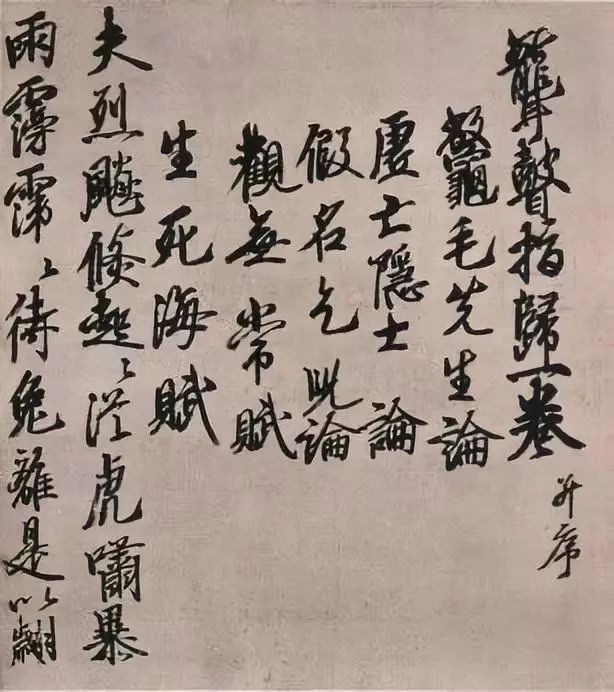 聾瞽指歸一卷 并序
鼈毛先生論
虛亡隱士論
假名乞兒論
觀無常賦
生死海賦
夫烈飈倏起〻從虎嘯暴
雨霶霈〻待兔離是以